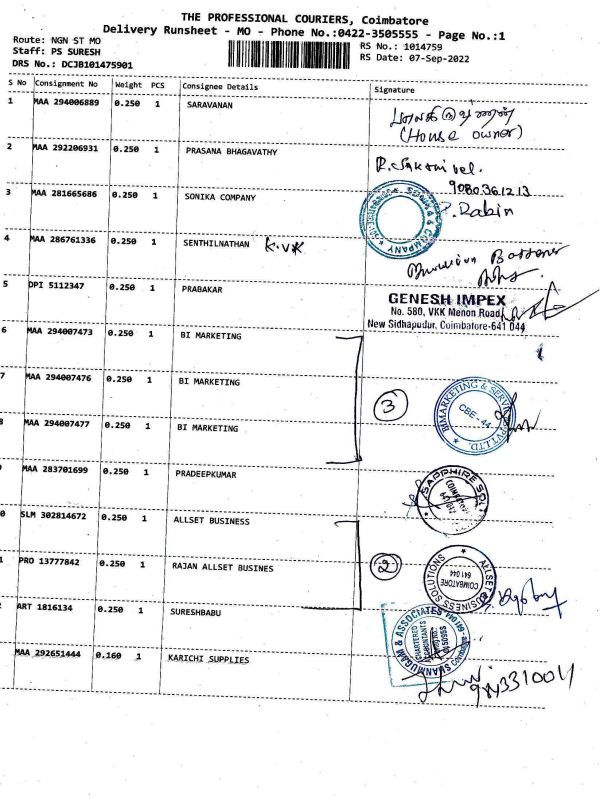 THE PROFESSIONAL COURIERS, Coimbatore
Delivery Runsheet - MO - Phone No.:0422-3505555 - Page No.:1
Route: NGN ST MO
Staff: PS SURESH
DRS No.: DCJB101475901
RS No.: 1014759
RS Date: 07-Sep-2022
S No Consignment No Weight PCS Consignee Details Signature
1 MAA 294006889 0.250 1 SARAVANAN
(House owner)
2 MAA 292206931 0.250 1 PRASANA BHAGAVATHY
3 MAA 281665686 0.250 1 SONIKA COMPANY
& COMPANY
4 MAA 286761336 0.250 1 SENTHILNATHAN K.VK
5 DPI 5112347 0.250 1 PRABAKAR
GENESH IMPEX
No. 580, VKK Menon Road,
New Sidhapudur, Coimbatore-641 044
6 MAA 294007473 0.250 1 BI MARKETING
7 MAA 294007476 0.250 1 BI MARKETING
3
BI MARKETING & SERVICES PVT LTD.
CBE-44
MAA 294007477 0.250 1 BI MARKETING
MAA 283701699 0.250 1 PRADEEPKUMAR
SAPPHIRE
0 SLM 302814672 0.250 1 ALLSET BUSINESS
1 PRO 13777842 0.250 1 RAJAN ALLSET BUSINES
2
ALLSET BUSINESS SOLUTIONS
COIMBATORE
641 044
2 ART 1816134 0.250 1 SURESHBABU
SHANMUGAM & ASSOCIATES
CHARTERED
ACCOUNTANTS
MAA 292651444 0.160 1 KARICHI SUPPLIES